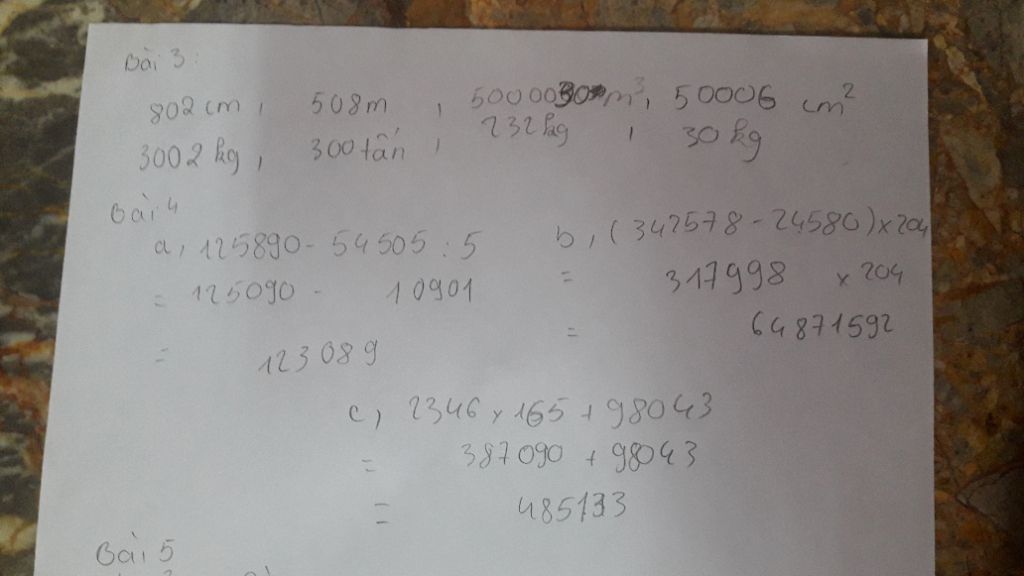 Bài 3:
802 cm, 508m, m³, 50006 cm²
3002 kg, 300 tấn, 232 kg, 30 kg
Bài 4
a, 125890 - 54505 : 5
= 125090 - 10901
= 123089
b, (342578 - 24580) x 204
= 317998 x 204
= 64871592
c, 2346 x 165 + 98043
= 387090 + 98043
= 485133
Bài 5